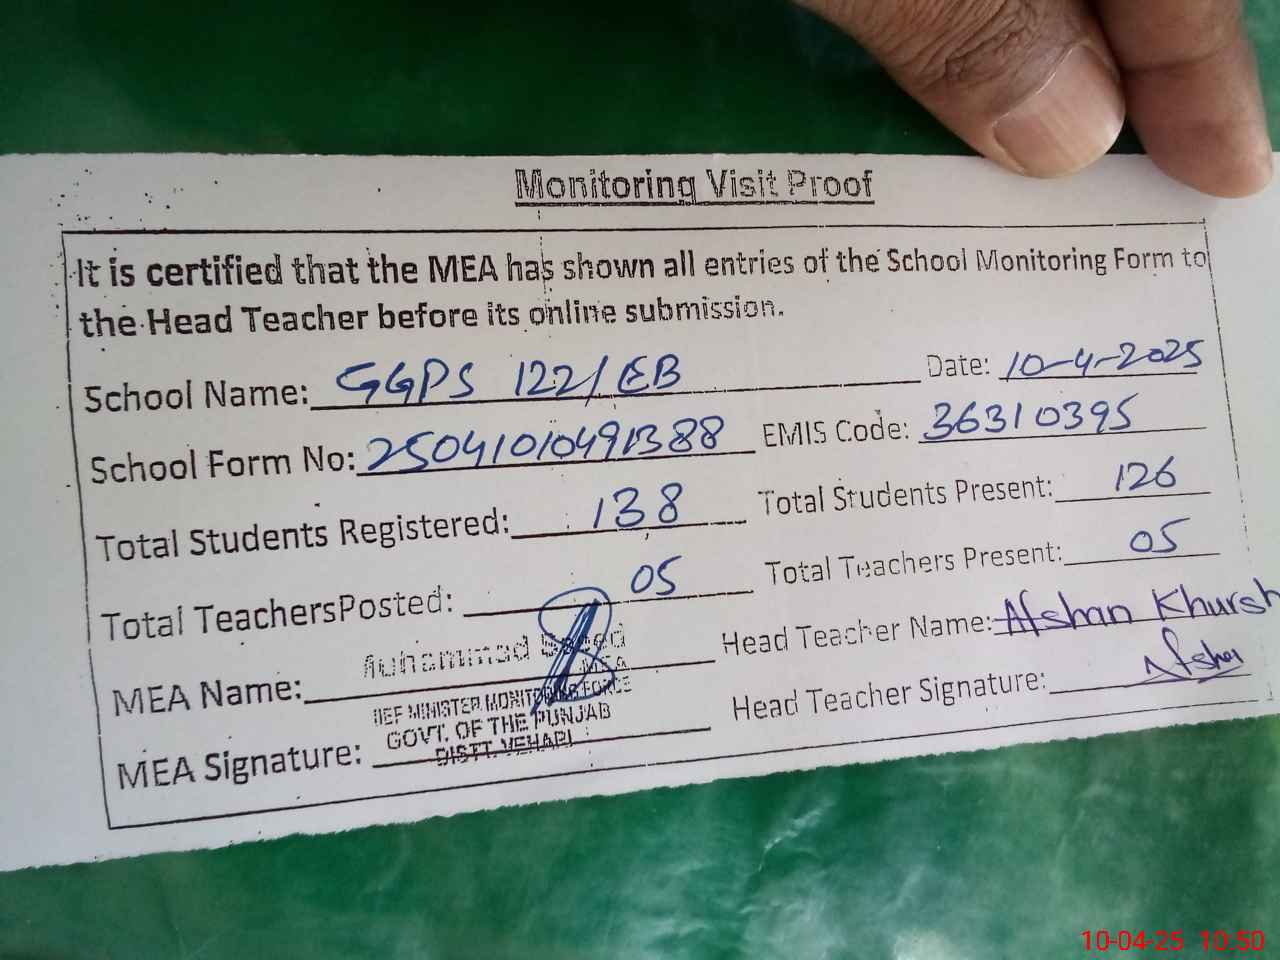 Monitoring Visit Proof
It is certified that the MEA has shown all entries of the School Monitoring Form to
the Head Teacher before its online submission.
School Name: GGPS 122/EB Date: 10-4-2025
School Form No: 25041010491388 EMIS Code: 36310395
Total Students Registered: 138 Total Students Present: 126
Total TeachersPosted: 05 Total Teachers Present: 05
MEA Name: Muhammad Saeed Head Teacher Name: Afshan Khursh
MEA
IEF MINISTER MONITORING FORCE
GOVT. OF THE PUNJAB
DISTT. VEHARI
MEA Signature: Head Teacher Signature: Afshan
10-04-25 10:50